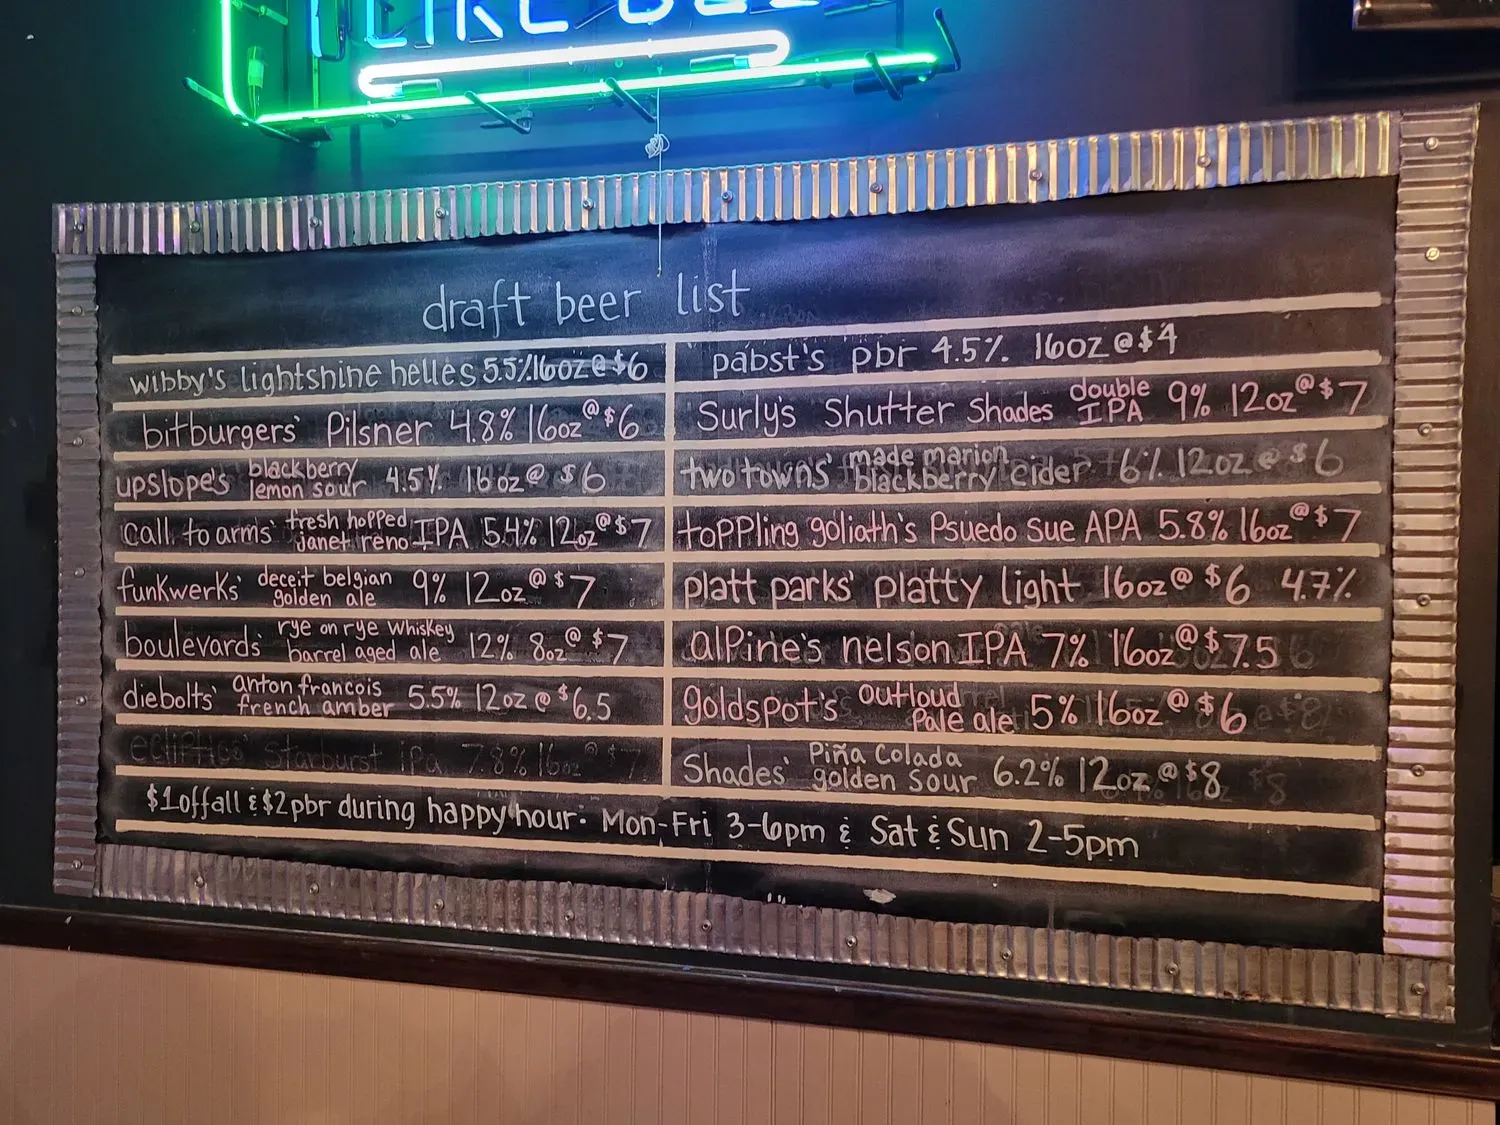 I LIKE BEE
draft beer list
wibby's lightshine helles 5.5% 16oz @ $6
bitburgers' Pilsner 4.8% 16oz @ $6
upslope's blackberry lemon sour 4.5% 16oz @ $6
call to arms' fresh hopped janet reno IPA 5.4% 12oz @ $7
funkwerks' deceit belgian golden ale 9% 12oz @ $7
boulevards' rye on rye whiskey barrel aged ale 12% 8oz @ $7
diebolts' anton francois french amber 5.5% 12oz @ $6.5
ecliptics' starburst ipa 7.8% 16oz @ $7
pabst's pbr 4.5% 16oz @ $4
Surly's Shutter Shades double IPA 9% 12oz @ $7
two towns' made marion blackberry cider 6% 12oz @ $6
toppling goliath's Psuedo Sue APA 5.8% 16oz @ $7
platt parks' platty light 16oz @ $6 4.7%
alpine's nelson IPA 7% 16oz @ $7.5
goldspot's outloud Pale ale 5% 16oz @ $6
Shades' Piña Colada golden sour 6.2% 12oz @ $8
$1 off all & $2 pbr during happy hour: Mon-Fri 3-6pm & Sat & Sun 2-5pm